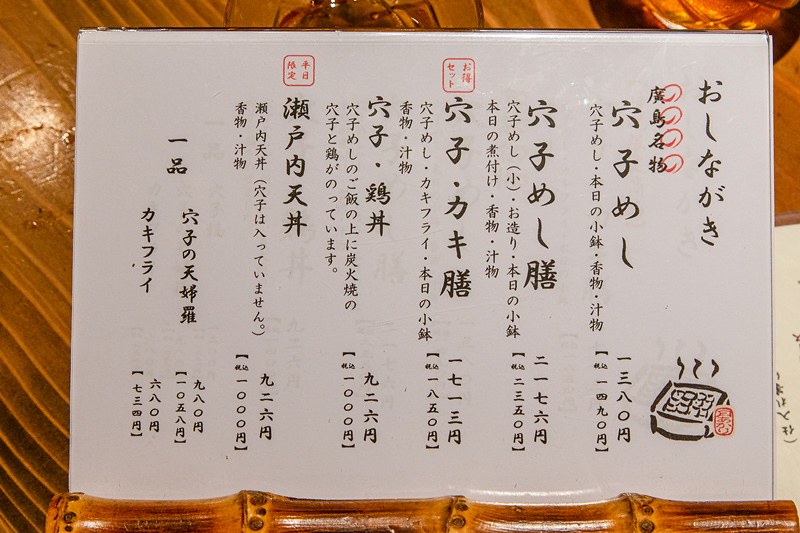 おしながき
廣島名物
穴子めし
穴子めし・本日の小鉢・香物・汁物
一三八〇円
【税込一四九〇円】
穴子めし膳
穴子めし（小）・お造り・本日の小鉢
本日の煮付け・香物・汁物
二一七六円
【税込二三五〇円】
お得セット
穴子・カキ膳
穴子めし・カキフライ・本日の小鉢
香物・汁物
一七一三円
【税込一八五〇円】
穴子・鶏丼
穴子めしのご飯の上に炭火焼の
穴子と鶏がのっています。
九二六円
【税込一〇〇〇円】
平日限定
瀬戸内天丼
瀬戸内天丼（穴子は入っていません。）
香物・汁物
九二六円
【税込一〇〇〇円】
一品
穴子の天婦羅
九八〇円
【一〇五八円】
カキフライ
六八〇円
【七三四円】